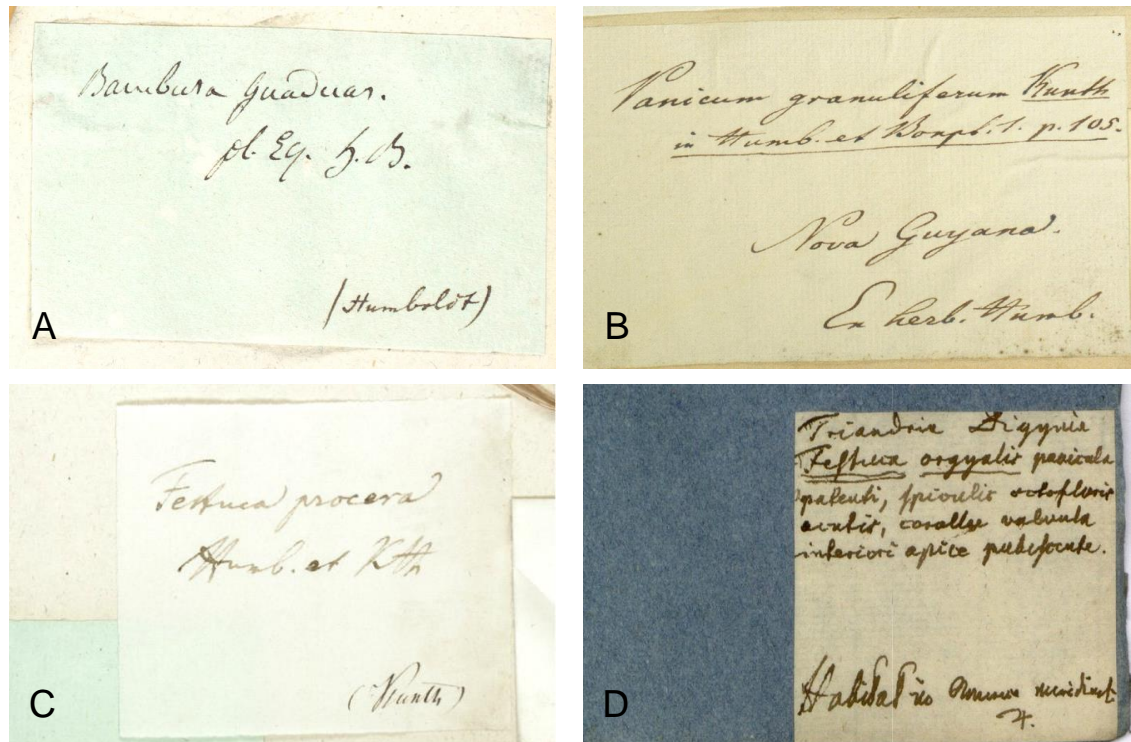 Bambusa Guaduas.
pl. Eq. H. B.
(Humboldt)
A
Panicum granuliferum Kunth
in Humb. et Bonpl. 1. p. 105.
Nova Guyana.
Ex herb. Humb.
B
Festuca procera
Humb. et Kth
(Kunth)
C
Triandria Digynia
Festuca orgyalis panicula
patenti, spiculis octofloris
acutis, corollae valvula
inferiori apice pubescente.
Habitat in meridional
♃.
D